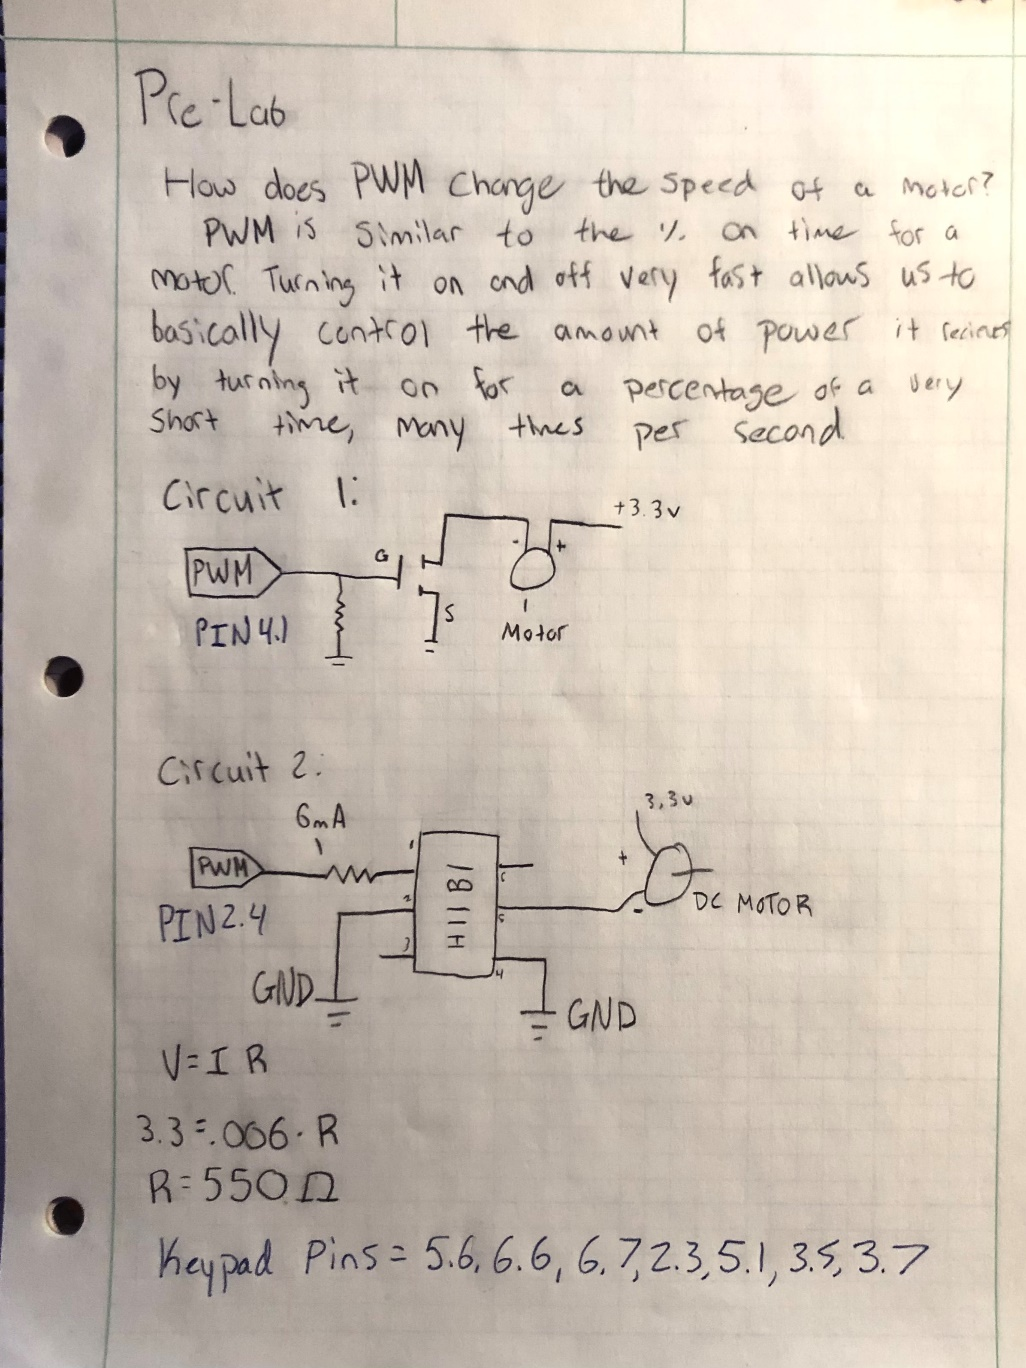 Pre-Lab
How does PWM Change the speed of a motor?
PWM is Similar to the % on time for a
motor. Turning it on and off very fast allows us to
basically control the amount of power it recieves
by turning it on for a percentage of a very
Short time, many times per second.
Circuit 1:
+3.3v
G
- +
PWM
S
PIN 4.1
Motor
Circuit 2:
3.3v
6mA
1
+
PWM
2
5
3
4
H11B1
-
DC MOTOR
PIN 2.4
GND
GND
V=IR
3.3=.006·R
R=550Ω
Keypad Pins = 5.6, 6.6, 6.7, 2.3, 5.1, 3.5, 3.7